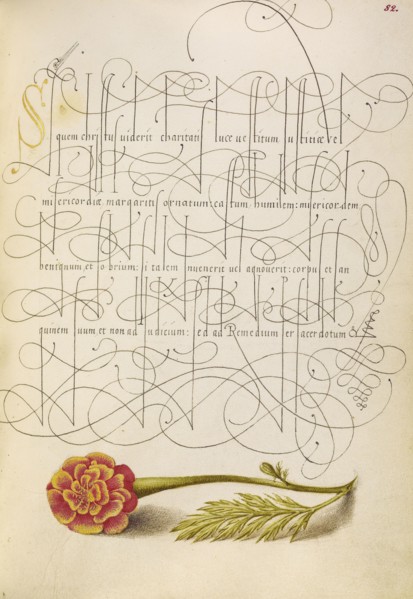 82.
Si quem christus viderit charitatis luce vestitum iustitiæ vel
misericordiæ margaritis ornatum: castum humilem: misericordem
benignum et sobrium: si talem invenerit vel agnoverit: corpus et san
guinem suum et non ad iudicium: sed ad Remedium per sacerdotum